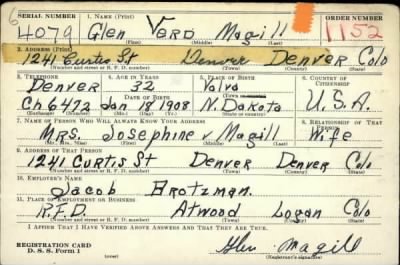 SERIAL NUMBER 1. NAME (Print) ORDER NUMBER
4079 Glen Verd Magill 1152
(First) (Middle) (Last)
2. ADDRESS (Print)
1241 Curtis St Denver Denver Colo
(Number and street or R. F. D. number) (Town) (County) (State)
3. TELEPHONE 4. AGE IN YEARS 5. PLACE OF BIRTH 6. COUNTRY OF CITIZENSHIP
Denver 32 Volva
DATE OF BIRTH
Ch 6472 Jan 18 1908 N. Dakota U.S.A.
(Exchange) (Number) (Mo.) (Day) (Yr.) (State or country)
7. NAME OF PERSON WHO WILL ALWAYS KNOW YOUR ADDRESS 8. RELATIONSHIP OF THAT PERSON
Mrs. Josephine v. Magill Wife
(Mr., Mrs., Miss) (First) (Middle) (Last)
9. ADDRESS OF THAT PERSON
1241 Curtis St Denver Denver Colo
(Number and street or R. F. D. number) (Town) (County) (State)
10. EMPLOYER'S NAME
Jacob Brotzman.
11. PLACE OF EMPLOYMENT OR BUSINESS
R.F.D. Atwood Logan Colo
(Number and street or R. F. D. number) (Town) (County) (State)
I AFFIRM THAT I HAVE VERIFIED ABOVE ANSWERS AND THAT THEY ARE TRUE.
REGISTRATION CARD
D. S. S. Form 1 Glen Magill
(Registrant's signature)